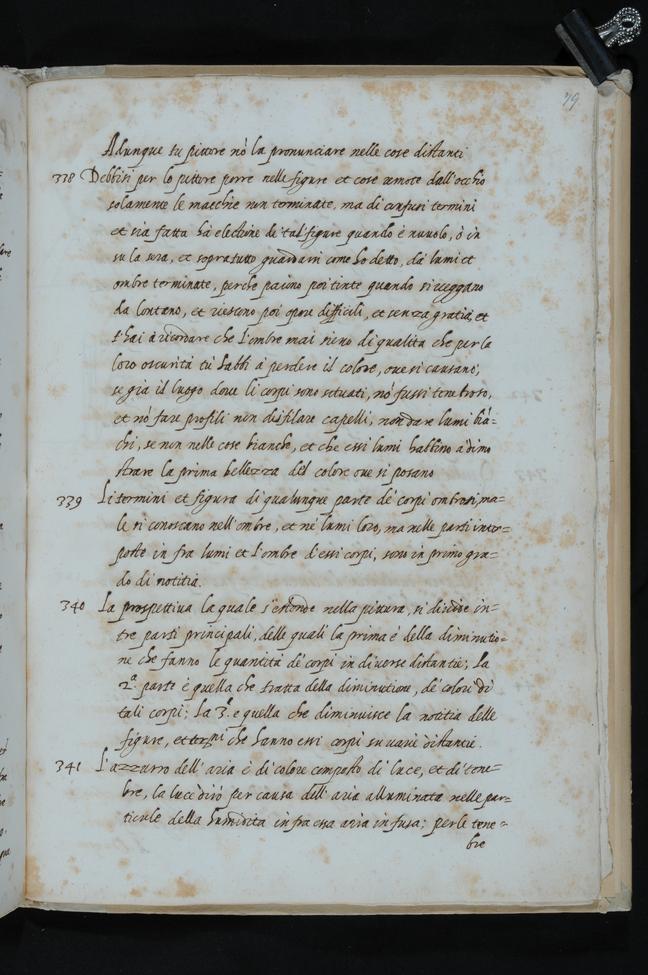 79
Adunque tu pittore nò la pronunciare nelle cose distanti
338 Debbisi per lo pittore porre nelle figure et cose remote dall'occhio
solamente le macchie non terminate, ma di confusi termini
et sia fatta la elettione di tal' figure quando è nuvolo, ò in
su la sera, et sopratutto guardarsi come ho detto, da lumi et
ombre terminate, perche paiono poi tinte quando si veggano
da lontano, et riescono poi opere difficili, et senza gratia, et
t'hai à ricordare che l'ombre mai sieno di qualita che per la
loro oscurità tù habbi à perdere il colore, ove si causano,
se gia il luogo dove li corpi sono situati, nò fussi tenebroso,
et nò fare profili non disfilare capelli, non dare lumi bià=
chi, se non nelle cose bianche, et che essi lumi habbino à dimo
strare la prima bellezza del colore ove si posano
339 Li termini et figura di qualunque parte de' corpi ombrosi ma=
le si conoscano nell'ombre, et ne' lumi loro, ma nelle parti inter=
poste in fra lumi et l'ombre d'essi corpi, sono in primo gra=
do di notitia.
340 La prospettiva la quale s'estende nella pittura, si divide in=
tre parti principali, delle quali la prima é della diminutio=
ne che fanno le quantità de' corpi in diverse distantie; La
2ª. parte è quella che tratta della diminutione, de' colori di
tali corpi; La 3ª. e quella che diminuisce la notitia delle
figure, et termini che hanno essi corpi su varie distantie.
341 L'azzurro dell'aria è di colore composto di luce, et di tene=
bre, la luce dirò per causa dell'aria alluminata nelle par=
ticule della humidita in fra essa aria infusa; per le tene=
bre